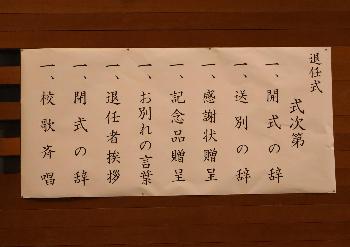 退任式
式次第
一、開式の辞
一、送別の辞
一、感謝状贈呈
一、記念品贈呈
一、お別れの言葉
一、退任者挨拶
一、閉式の辞
一、校歌斉唱